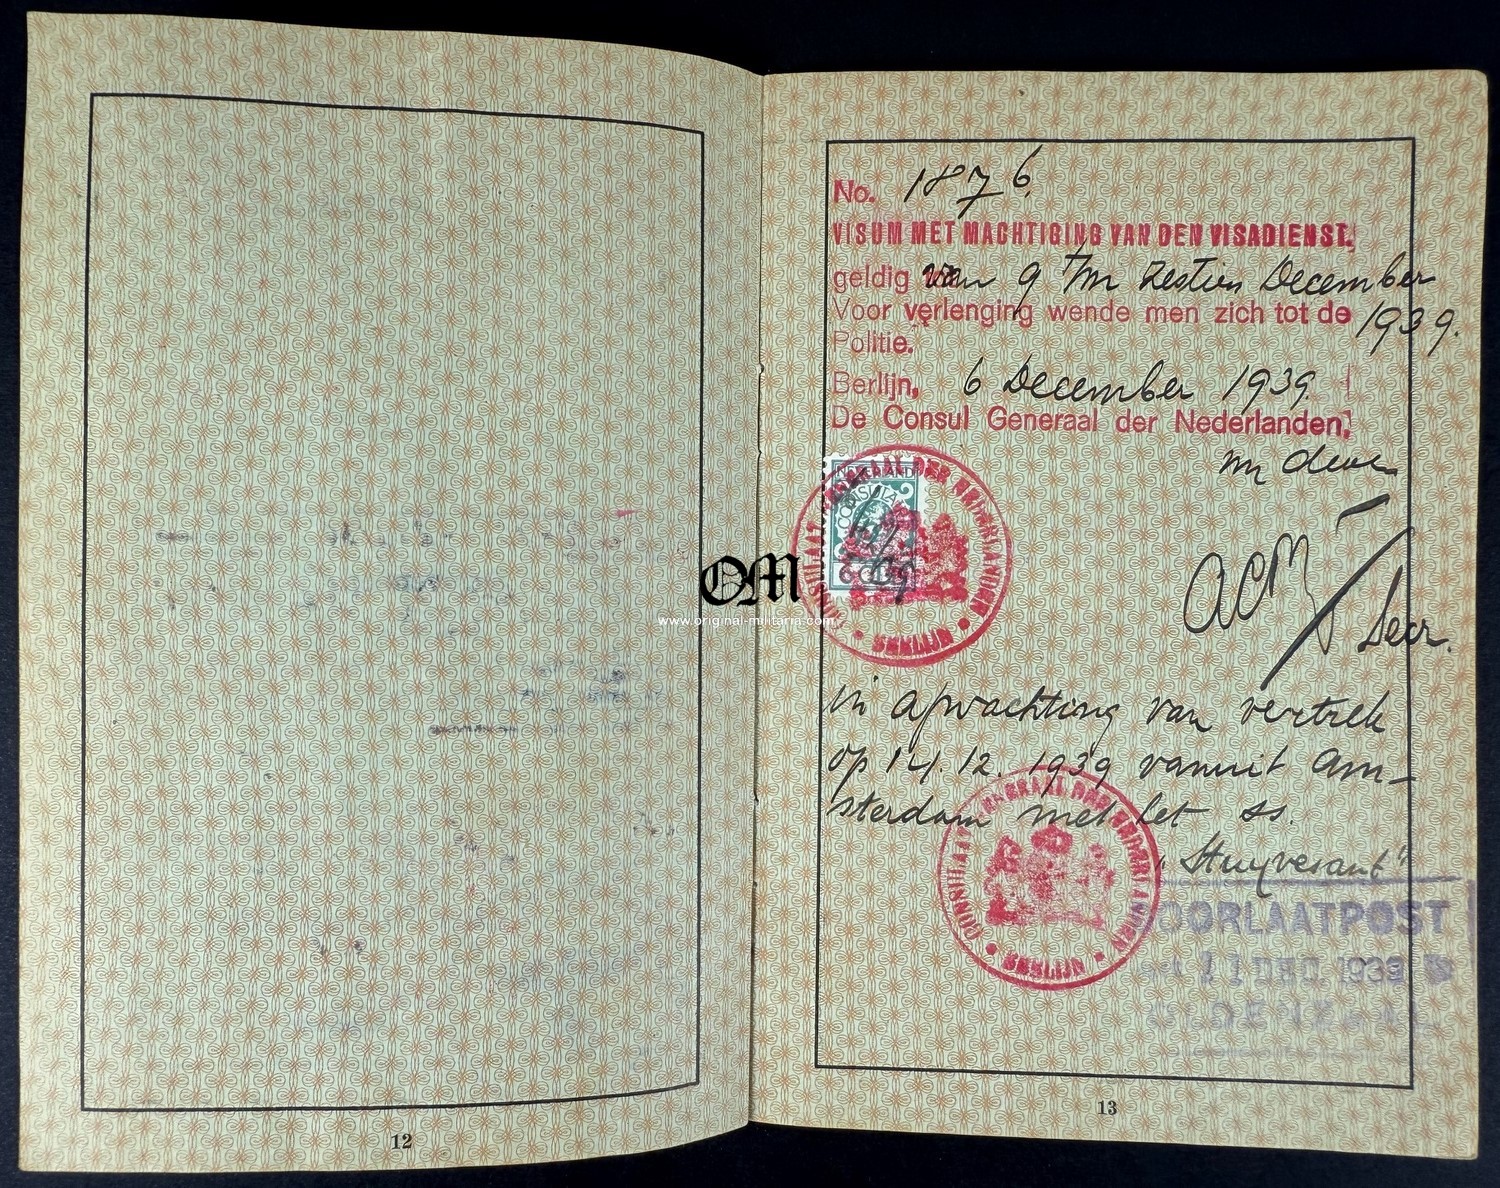 No. 1876.
VISUM MET MACHTIGING VAN DEN VISADIENST.
geldig van 9 t/m zestien December
Voor verlenging wende men zich tot de 1939.
Politie.
Berlijn, 6 December 1939.
De Consul Generaal der Nederlanden,
NEDERLAND
CONSULA
CONSULAAT GENERAAL DER NEDERLANDEN
• BERLIJN •
Secr.
OM
www.original-militaria.com
in afwachting van vertrek
op 14.12.1939 vanuit Am-
sterdam met het ss.
"Stuyvesant"
CONSULAAT GENERAAL DER NEDERLANDEN
• BERLIJN •
DOORLAATPOST
11 DEC. 1939
OLDENZAAL
12
13